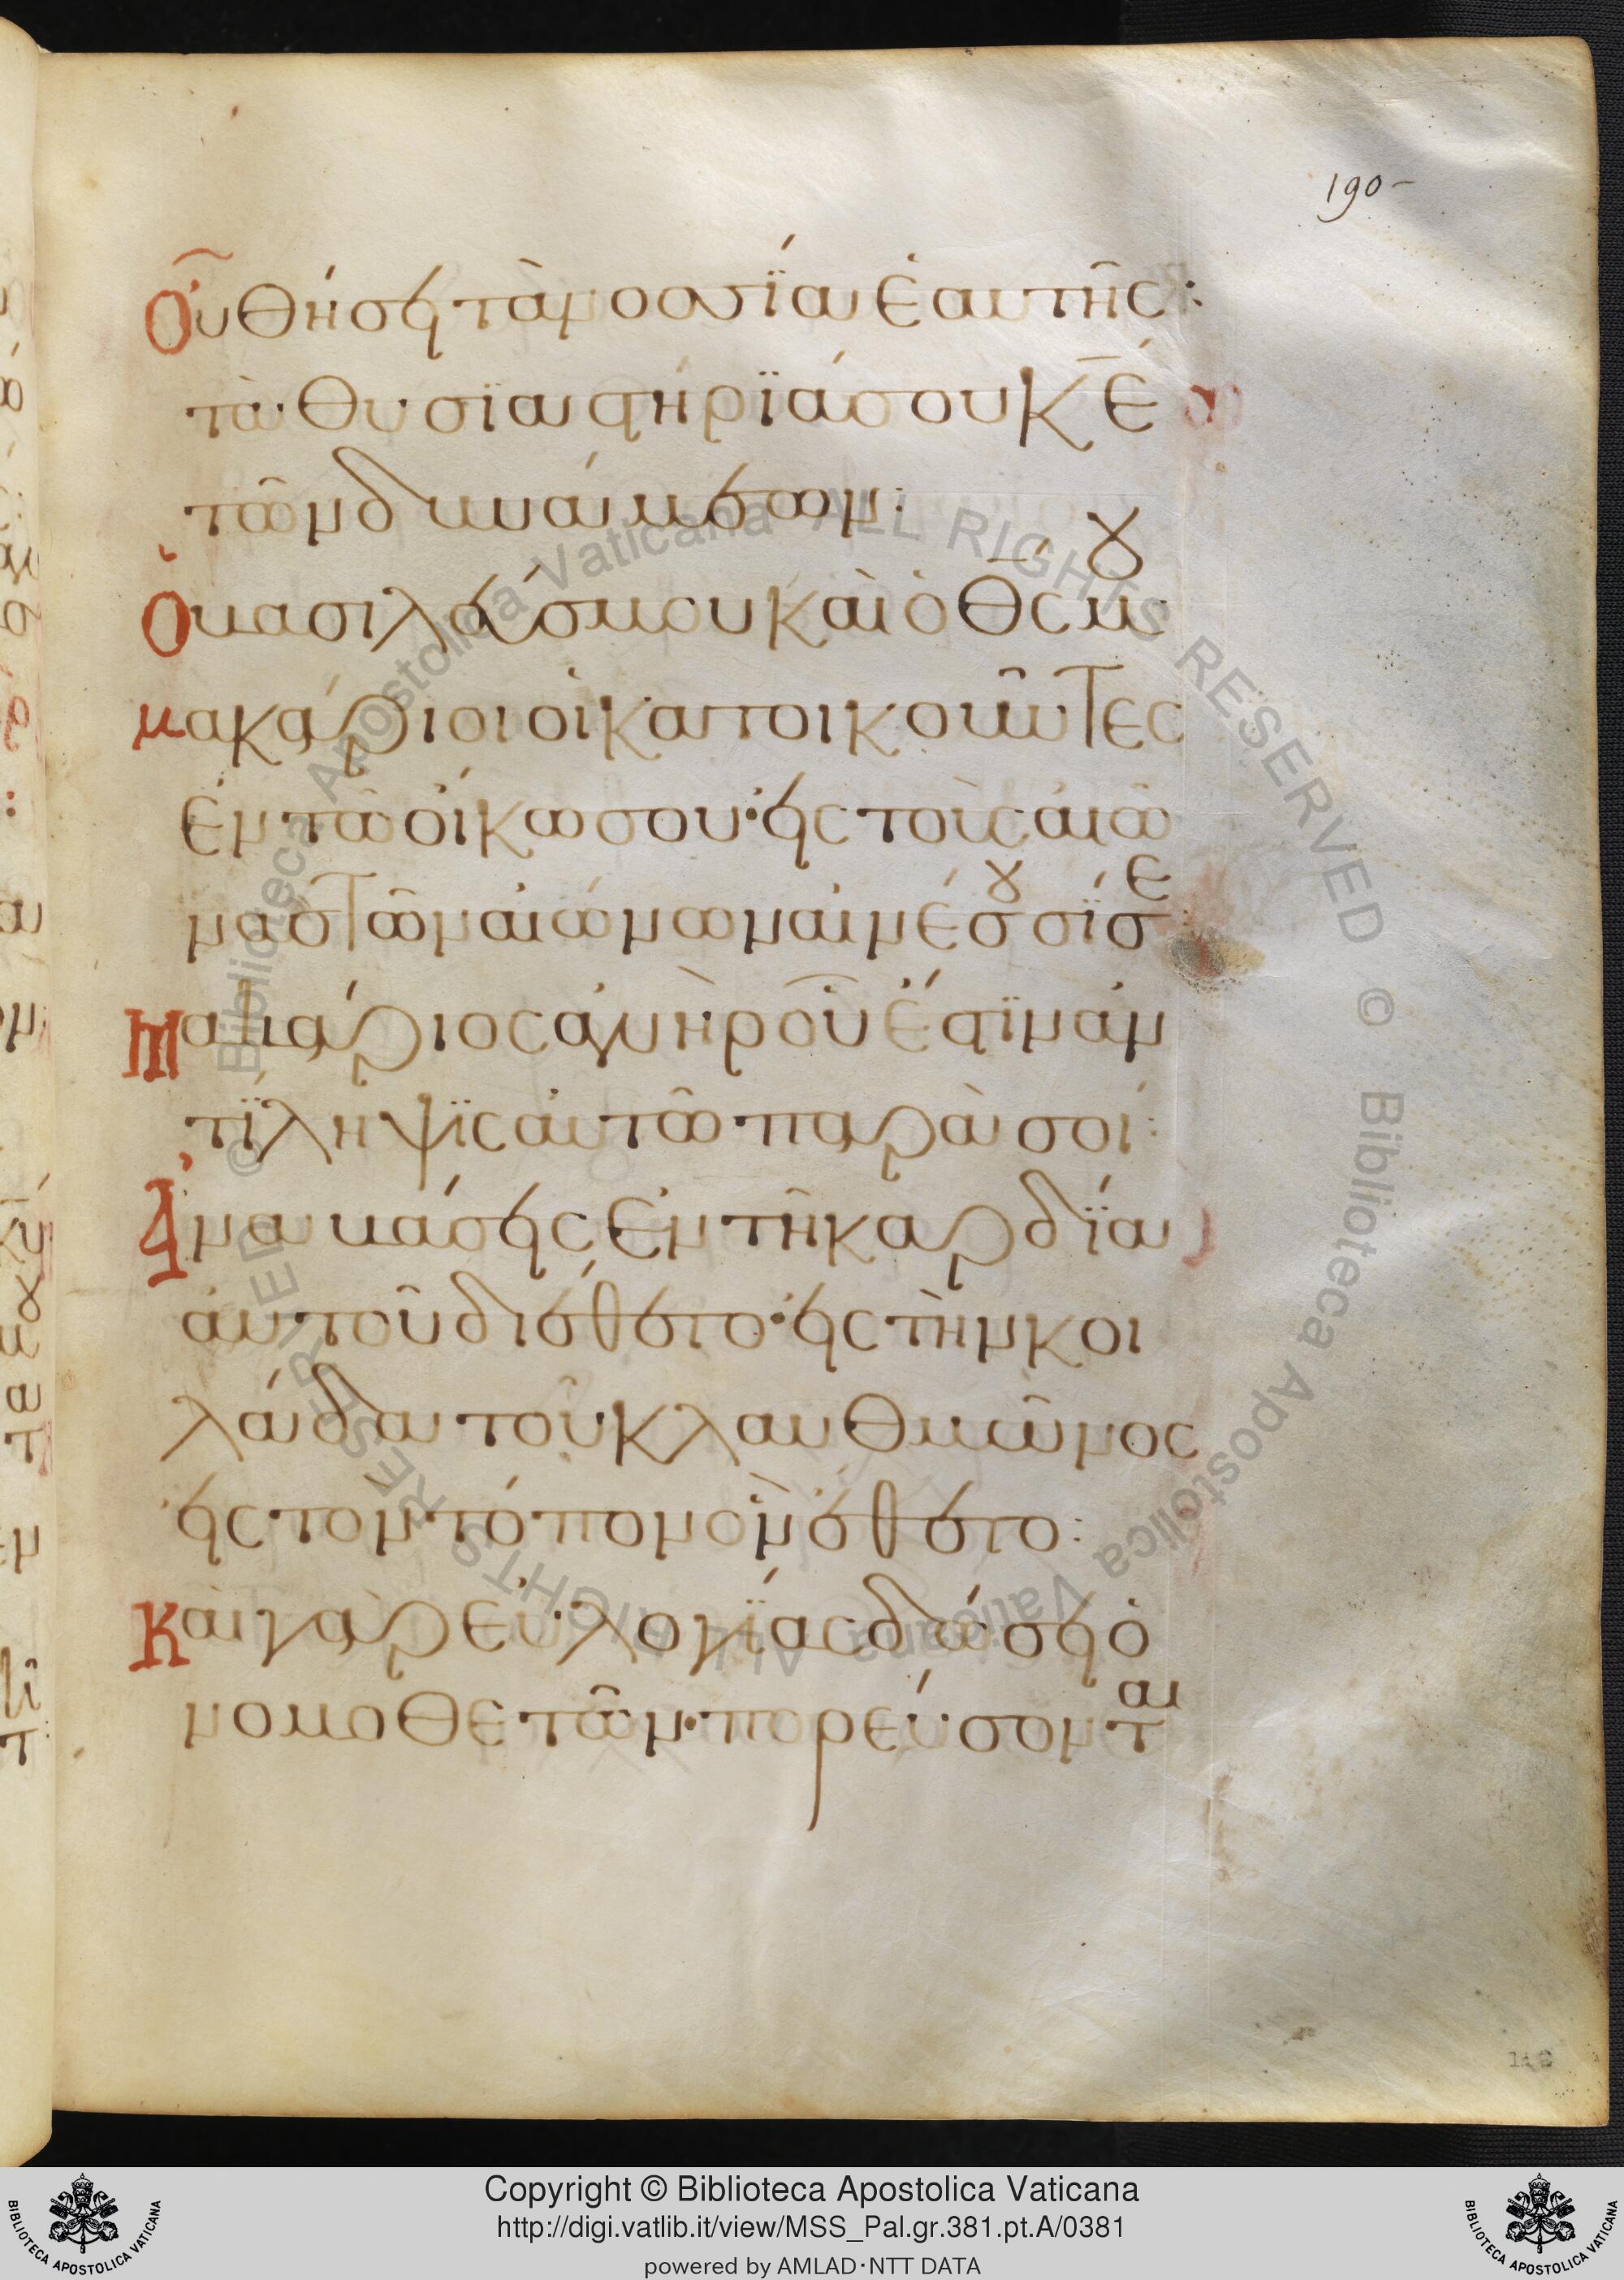 190-
Οὗ θήσει τὰ νοσσϊὰ ἑαυτῆς:
τὰ θυσϊαστήρϊά σου κ̅ε̅
τῶν δυνάμεων:
Ὁ βασιλεύς μου καὶ ὁ θ̅ς̅ μου
μακάριοι οἱ κατοικοῦντες
ἐν τῶ οἴκω σου· εἰς τοὺς αἰῶ
νας τῶν αἰώνων αἰνέσουσί σε
Μακάριος ἀνὴρ οὗ ἐστϊν ἀν
τίληψϊς αὐτῶ παρὰ σοί:
Ἀναβάσεις ἐν τῆ καρδία
αὐτοῦ διέθετο· εἰς τὴν κοι
λάδα τοῦ κλαυθμῶνος
εἰς τον τόπον ὃν ἔθετο:
Καὶ γὰρ εὐλογίας δώσει ὁ
νομοθετῶν· πορεύσονται
ALL RIGHTS RESERVED © Biblioteca Apostolica Vaticana ALL RIGHTS RESERVED © Biblioteca Apostolica Vaticana
BIBLIOTECA APOSTOLICA VATICANA
Copyright © Biblioteca Apostolica Vaticana
http://digi.vatlib.it/view/MSS_Pal.gr.381.pt.A/0381
powered by AMLAD·NTT DATA
BIBLIOTECA APOSTOLICA VATICANA